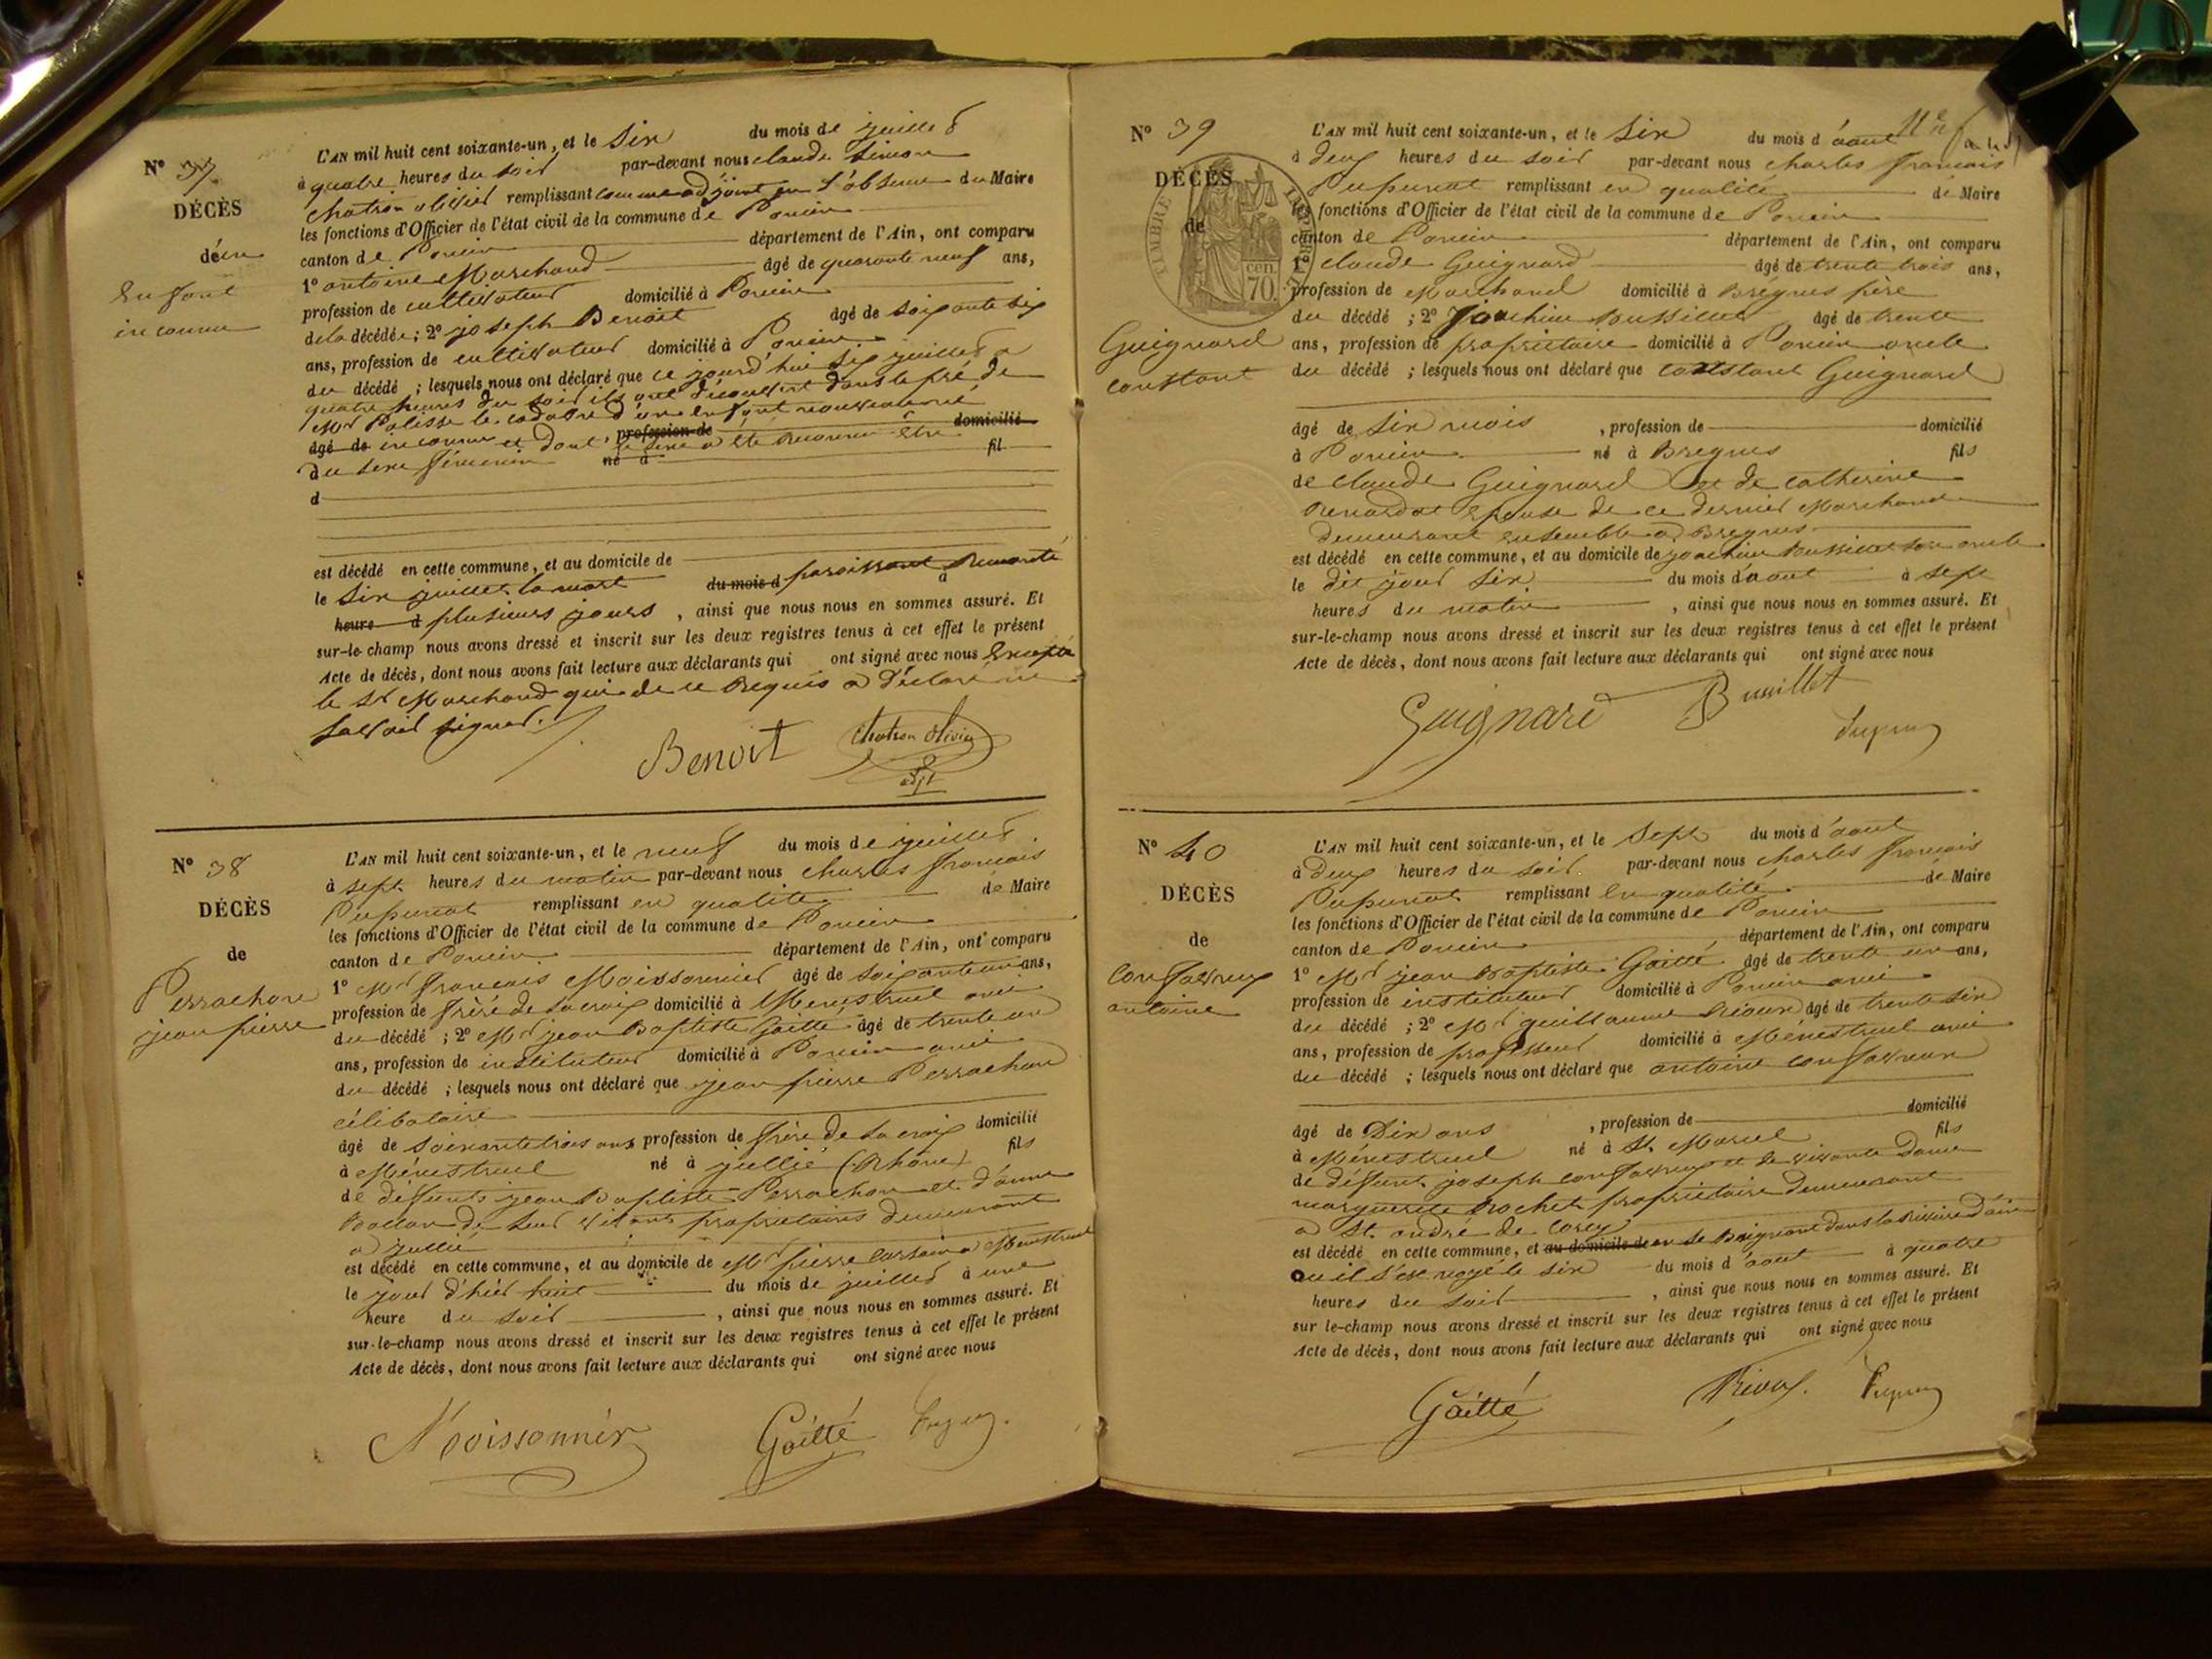 N° 37
DÉCÈS
d'un
Enfant
inconnu
L'AN mil huit cent soixante-un, et le Six du mois de juillet
à quatre heures du soir par-devant nous claude Simon
Chatron olivier remplissant comme adjoint en l'absence du Maire
les fonctions d'Officier de l'état civil de la commune de Poncin
canton de Poncin département de l'Ain, ont comparu
1° antoine Marchand âgé de quarante neuf ans,
profession de cultivateur domicilié à Poncin
de la décédée; 2° joseph Benoit âgé de soixante six
ans, profession de cultivateur domicilié à Poncin
du décédé ; lesquels nous ont déclaré que ce jourd'hui six juillet a
quatre heures du soir ils ont découvert dans le pré de
Mr Palisse le cadavre d'un enfant nouveau né
âgé de inconnu et dont , profession de le sexe a été reconnu être domicilié
du sexe féminin né à fil
d
est décédé en cette commune, et au domicile de
le Six juillet la mort du mois d paroissant Remonté à
heure d plusieurs jours , ainsi que nous nous en sommes assuré. Et
sur-le-champ nous avons dressé et inscrit sur les deux registres tenus à cet effet le présent
Acte de décès, dont nous avons fait lecture aux déclarants qui ont signé avec nous Excepté
le Sr Marchand qui de ce Requis a Déclaré ne
savoir signer.
Benoit Chatron Olivier
adjt
N° 38
DÉCÈS
de
Perrachon
jean pierre
L'AN mil huit cent soixante-un, et le neuf du mois de juillet
à sept heures du matin par-devant nous charles francois
Pupunat remplissant en qualité de Maire
les fonctions d'Officier de l'état civil de la commune de Poncin
canton de Poncin département de l'Ain, ont comparu
1° Mr francois Moissonnier âgé de soixante un ans,
profession de frère de la croix domicilié à Menestruel ami
du décédé ; 2° Mr jean Baptiste Gaitté âgé de trente un
ans, profession de instituteur domicilié à Poncin ami
du décédé ; lesquels nous ont déclaré que jean pierre Perrachon
célibataire
âgé de soixante trois ans profession de frère de la croix domicilié
à Ménestruel né à jullié (Rhône) fils
de deffunts jean Baptiste Perrachon et d'anne
de leur vivant propriétaires demeurant
a jullié
est décédé en cette commune, et au domicile de Mr pierre a Menestruel
le jour d'hier huit du mois de juillet à une
heure du soir , ainsi que nous nous en sommes assuré. Et
sur-le-champ nous avons dressé et inscrit sur les deux registres tenus à cet effet le présent
Acte de décès, dont nous avons fait lecture aux déclarants qui ont signé avec nous
Moissonnier Gaitté
N° 39
DÉCÈS
de
TIMBRE IMPÉRIAL
70 cen.
Guignard
constant
L'AN mil huit cent soixante-un, et le Six du mois d'aout
à deux heures du soir par-devant nous charles francois
Pupunat remplissant en qualité de Maire
les fonctions d'Officier de l'état civil de la commune de Poncin
canton de Poncin département de l'Ain, ont comparu
1° claude Guignard âgé de trente trois ans,
profession de Marchand domicilié à Bregnes père
du décédé ; 2° Joachim Bussillet âgé de trente
ans, profession de propriétaire domicilié à Poncin oncle
du décédé ; lesquels nous ont déclaré que constant Guignard
âgé de Six mois , profession de domicilié
à Poncin né à Bregnes fils
de claude Guignard et de catherine
Renardat Epouse de ce dernier Marchand
demeurant ensemble a Bregnes
est décédé en cette commune, et au domicile de joachim Bussillet son oncle
le dit jour Six du mois d'aout à sept
heures du matin , ainsi que nous nous en sommes assuré. Et
sur-le-champ nous avons dressé et inscrit sur les deux registres tenus à cet effet le présent
Acte de décès, dont nous avons fait lecture aux déclarants qui ont signé avec nous
Guignard
N° 40
DÉCÈS
de
Confavreux
antoine
L'AN mil huit cent soixante-un, et le Sept du mois d'aout
à Deux heures du soir par-devant nous charles francois
Pupunat remplissant en qualité de Maire
les fonctions d'Officier de l'état civil de la commune de Poncin
canton de Poncin département de l'Ain, ont comparu
1° Mr jean Baptiste Gaitté âgé de trente un ans,
profession de instituteur domicilié à Poncin ami
du décédé ; 2° Mr guillaume âgé de trente six
ans, profession de professeur domicilié à Ménestruel ami
du décédé ; lesquels nous ont déclaré que antoine confavreux
âgé de Dix ans , profession de domicilié
à Ménestruel né à St. Marcel fils
de déffunt joseph confavreux et de vivante Dame
marguerite Rochet propriétaire demeurant
a St. andré de Corcy
est décédé en cette commune, et au domicile de en se Baignant dans la Rivière d'ain
ou il s'est noyé le six du mois d'aout à quatre
heures du soir , ainsi que nous nous en sommes assuré. Et
sur le-champ nous avons dressé et inscrit sur les deux registres tenus à cet effet le présent
Acte de décès, dont nous avons fait lecture aux déclarants qui ont signé avec nous
Gaitté